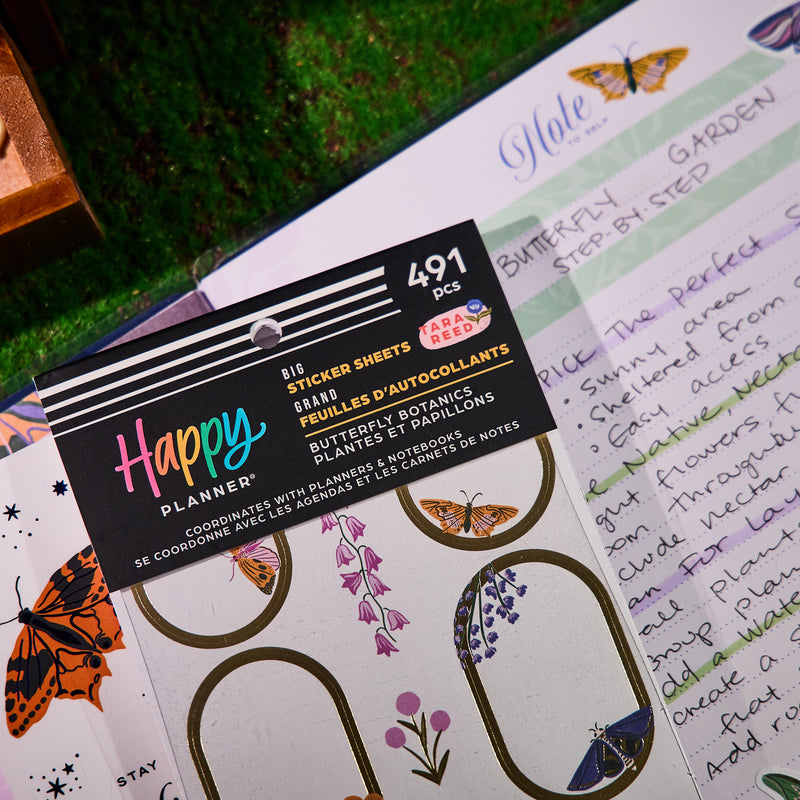 491
pcs
TARA
REED
BIG
STICKER SHEETS
GRAND
FEUILLES D'AUTOCOLLANTS
BUTTERFLY BOTANICS
PLANTES ET PAPILLONS
Happy
PLANNER®
COORDINATES WITH PLANNERS & NOTEBOOKS
SE COORDONNE AVEC LES AGENDAS ET LES CARNETS DE NOTES
STAY
Note
TO SELF
BUTTERFLY GARDEN
STEP-BY-STEP
PICK The perfect
• Sunny area
• Sheltered from
• Easy access
Native, Necta
flowers
throughou
nectar
For Lay
plant
Group plan
a Wate
create a
flat
Add ro